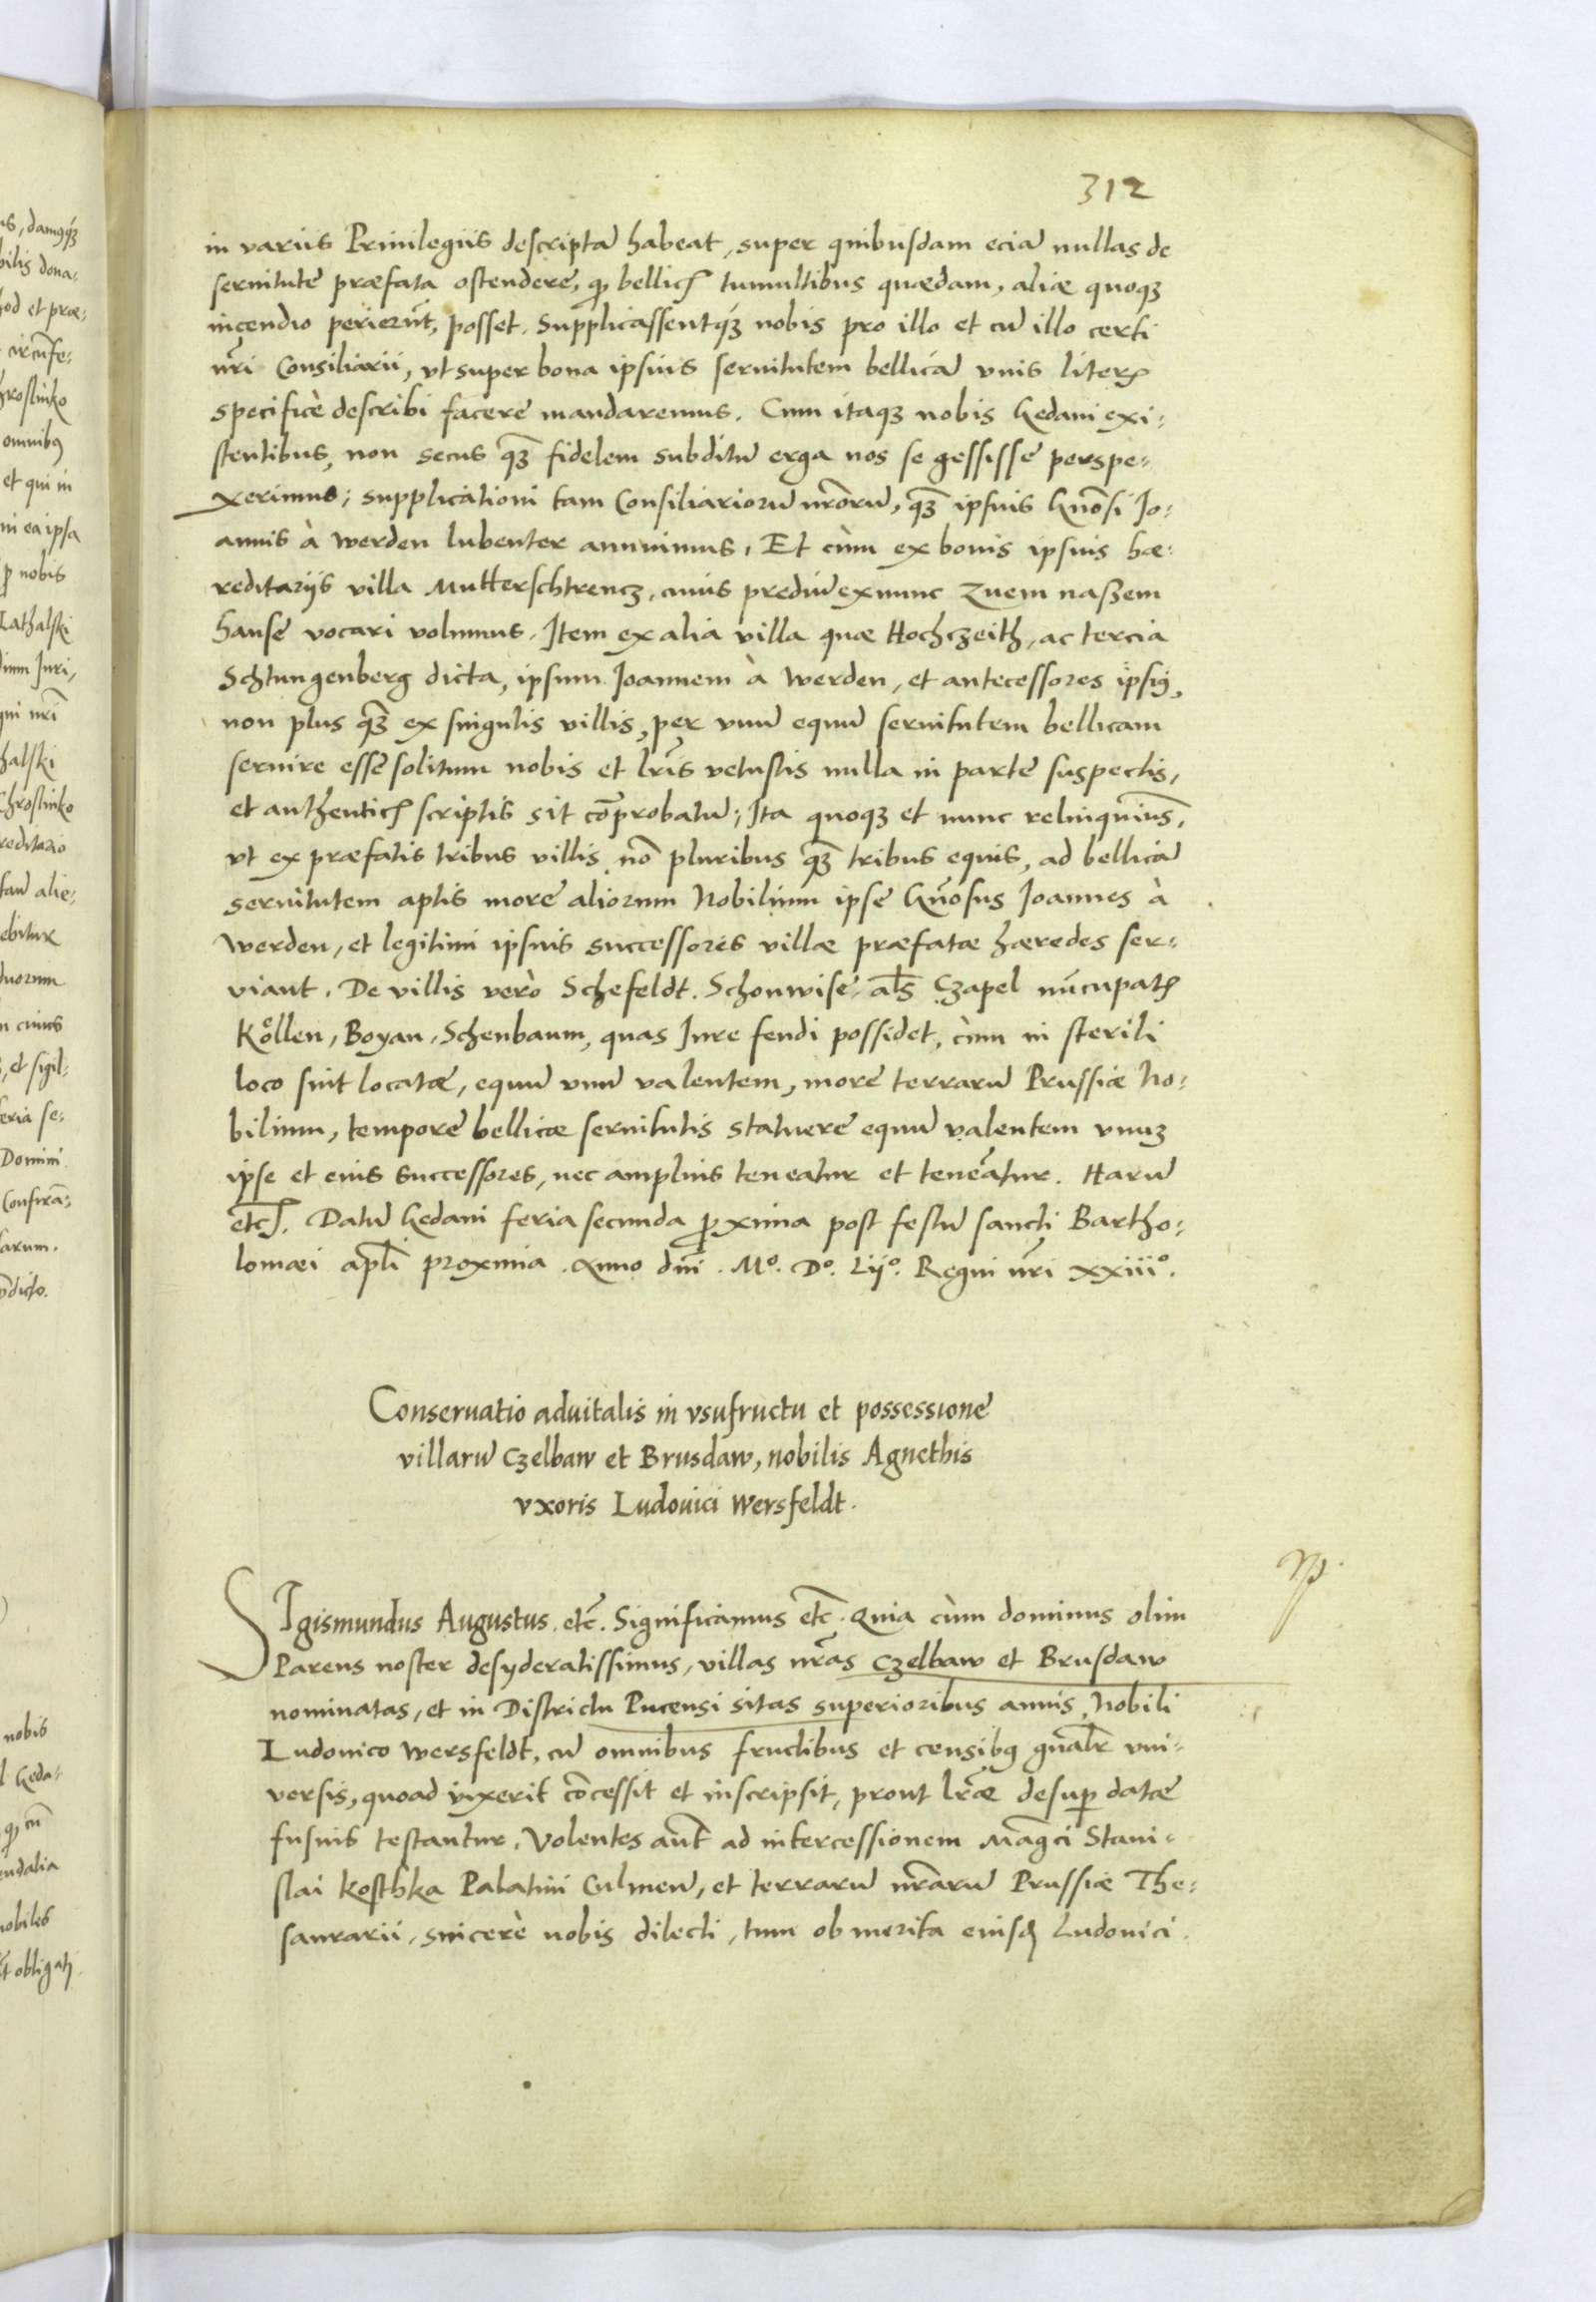 312
in variis Priuilegiis descripta habeat, super quibusdam ecia nullas de
seruitute præfata ostendere, qꝫ bellicꝭ tumultibus quædam, aliæ quoqꝫ
incendio perierūt, posset. Supplicassentqꝫ nobis pro illo et cū illo certi
nr̄i Consiliarii, vt super bona ipsius seruitutem bellicā vnis literꝭ
specificè describi facere mandaremus. Cum itaqꝫ nobis Gedani exi-
stentibus, non secus qꝫ̄ fidelem subditū erga nos se gessisse perspe-
xerimus; supplicationi tam Consiliariorū nr̄orū, qꝫ̄ ipsius Gn̄osi Jo-
annis à Werden lubenter annuimus, Et cùm ex bonis ipsius hæ-
reditariis villa Mutterschtrencz, cuius prediū exnunc Zuem naßem
hause vocari volumus. Item ex alia villa quæ Hochczeith, ac tercia
Schtungenberg dicta, ipsum Joannem à Werden, et antecessores ipsiꝰ,
non plus qꝫ̄ ex singulis villis, per vnū equū seruitutem bellicam
seruire esse solitum nobis et lr̄is vetustis nulla in parte suspectis,
et authenticꝭ scriptis sit cōprobatū; Ita quoqꝫ et nunc relinquimus,
vt ex præfatis tribus villis nō pluribus qꝫ̄ tribus equis, ad bellicā
seruitutem aptis more aliorum Nobilium ipse Gn̄osus Joannes à
Werden, et legitimi ipsius successores villæ præfatæ hæredes ser-
viant. De villis verò Schefeldt. Schonwise, al̄s Czapel nūcupatꝭ
Kőllen, Boyan, Schenbaum, quas Jure feudi possidet, cùm in sterili
loco sint locatæ, equū vnū valentem, more terrarū Prussiæ No-
bilium, tempore bellicæ seruitutis statuere equū valentem vnuꝫ
ipse et eius successores, nec amplius teneatur et teneātur. Harū
etcꝭ. Datū Gedani feria secunda ꝓxima post festū sancti Bartho-
lomæi apl̄i proxima. Anno dn̄i. M°. D°. Lij°. Regni nr̄i xxiii°.
Conseruatio aduitalis in vsufructu et possessione
villarū Czelbaw et Brusdaw, nobilis Agnethis
vxoris Ludouici Wersfeldt.
SIgismundus Augustus. etc̄. Significamus etc̄. Quia cùm dominus olim
Parens noster desyderatissimus, villas nr̄as Czelbaw et Brusdaw
nominatas, et in Districtu Pucensi sitas superioribus annis, Nobili
Ludouico Wersfeldt, cū omnibus fructibus et censibꝰ gn̄alr̄ vni-
versis, quoad vixerit cōcessit et inscripsit, prout lr̄æ desuꝑ datæ
fusius testantur. Volentes aūt ad intercessionem Maḡci Stani-
slai Kosthka Palatini Culmeñ, et terrarū nr̄arū Prussiæ The-
saurarii, sincerè nobis dilecti, tum ob merita eiusꝗ Ludouici.